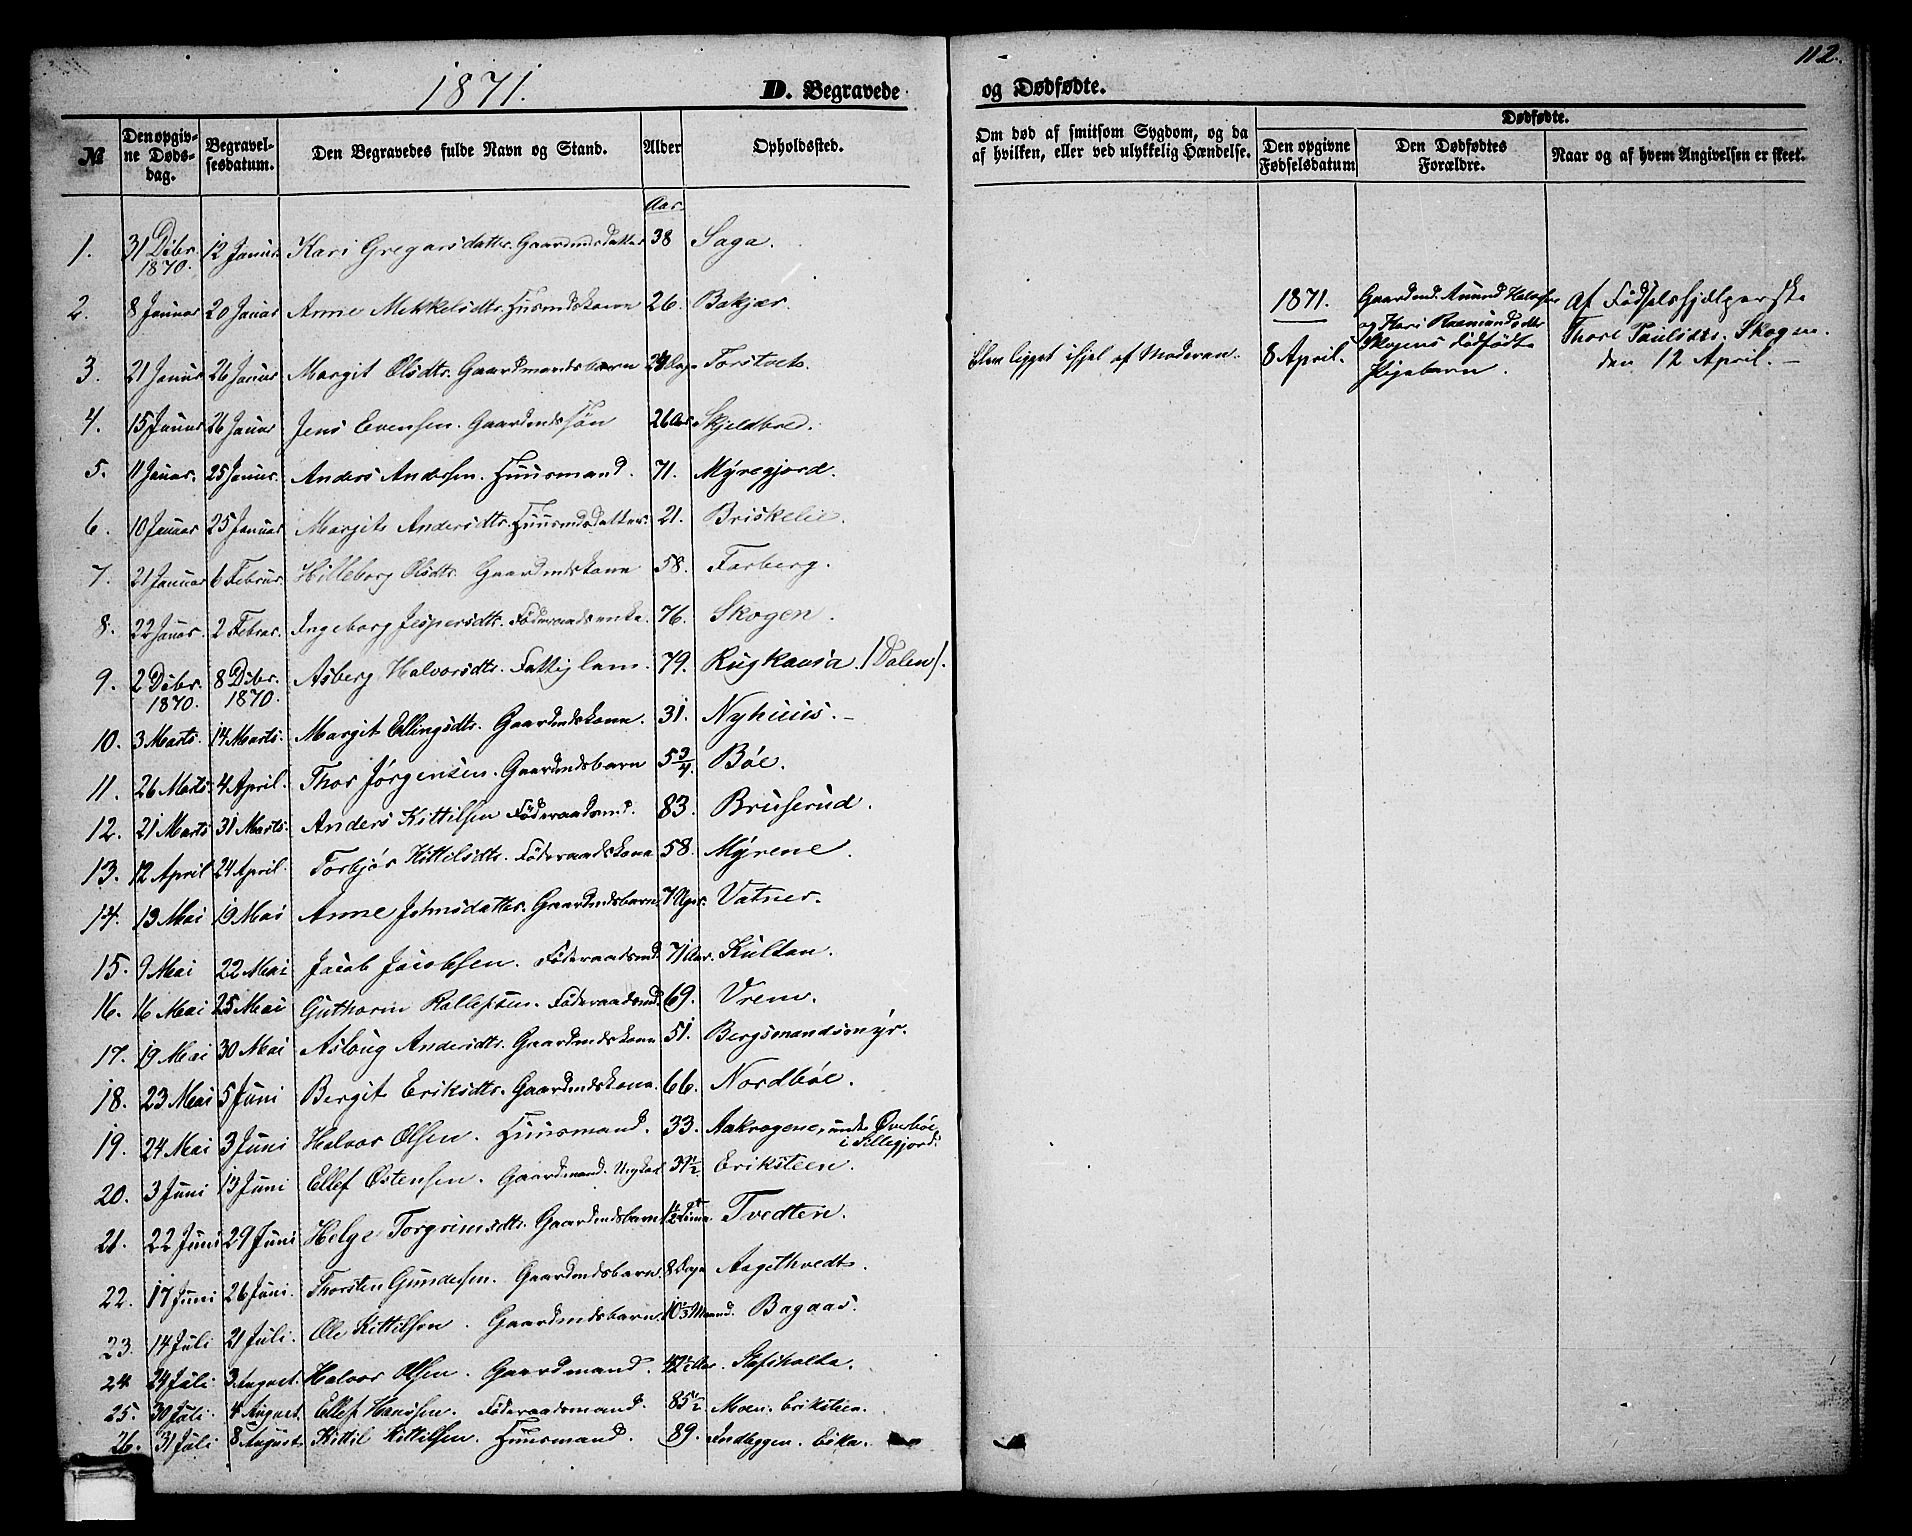 112.
1871.
D. Begravede
og Dødfødte.
№ Den opgivne Dødsdag. Begravelsesdatum. Den Begravedes fulde Navn og Stand. Alder Opholdssted.
Om død af smitsom Sygdom, og da af hvilken, eller ved ulykkelig Hændelse. Dødfødte. Den opgivne Fødselsdatum Den Dødfødtes Forældre. Naar og af hvem Angivelsen er skeet.
Aar.
1. 31 Dcbr. 1870. 12 Januar Kari Gregarsdatter. Gaardmdsdatter 38 Saga.
2. 8 Januar 20 Januar Anne Mekkelsdtr. Husmdskone 26. Bakjær.
3. 21 Januar 26 Januar Margit Olsdtr. Gaardmandsbarn Dage Torstvet. Blev ligget ihjel af Moderen.
4. 15 Januar 26 Januar Jens Evensen. Gaardmdssøn 26 Aar Skjeldboe.
5. 11 Januar. 25 Januar. Anders Andersen. Huusmand. 71. Myregjord.
6. 10 Januar 25 Januar Margit Andersdtr. Huusmdsdatter. 21. Briskelie.
7. 21 Januar 6 Februar. Hilleborg Olsdtr. Gaardmdskone 58. Forberg.
8. 22 Januar. 2 Februar. Ingeborg Jespersdtr. Föderaadsenke. 76. Skogen.
9. 2 Dcbr. 1870. 8 Dcbr. 1870. Asberg Halvorsdtr. Fattiglem. 79. Rugkaasa. /Dalen/.
10. 3 Marts. 14 Marts. Margit Ellingsdtr. Gaardmdskone. 31. Nyhuus.
11. 26 Marts 4 April. Thor Jörgensen. Gaardmdsbarn 5 3/4. Böe.
12. 21 Marts 31 Marts. Anders Kittilsen Föderaadsmd. 83. Bruserud.
13. 12 April 24 April. Torbjør Kittilsdtr. Föderaadskone 58. Myrene.
14. 13 Mai 19 Mai Anne Johnsdatter. Gaardmdsbarn 7 Uger. Vatner.
15. 9 Mai 22 Mai Jacob Jacobsen. Föderaadsmd. 71 Aar. Kultan.
16. 16 Mai 25 Mai Guthorm Rollefsen. Föderaadsmd. 69. Vrem.
17. 19 Mai 30 Mai Aslaug Andersdtr. Gaardmdskone 51. Bergsmandsmyr.
18. 23 Mai 5 Juni Bergit Eriksdtr. Gaardmdskone. 66. Nordböe.
19. 24 Mai 3 Juni Halvor Olsen. Huusmand. 33. Aakrogene, under Øverböe i Sillegjord.
20. 3 Juni 13 Juni Ellef Østensen. Gaardmand. Ungkarl Eriksteen.
21. 22 Juni 29 Juni Helge Torgrimsdtr. Gaardmdsbarn 1 1/2 Time Tvedten.
22. 17 Juni 26 Juni. Thorsten Gundersen. Gaardmdsbarn. 8 Dage Aagethvedt.
23. 14 Juli 21 Juli. Ole Kittilsen. Gaardmdsbarn 10 1/3 Maaned. Bagaas.
24. 24 Juli 3 August. Halvor Olsen. Gaardmand. 42 1/2 Aar. Stafsholta.
25. 30 Juli. 4 August. Ellef Hansen. Föderaadsmand. 85 1/2 Moen. Eriksteen.
26. 31 Juli 8 August Kittil Kittilsen. Huusmand. 89. Indlæggen. Eika.
1871.
8 April.
Gaardmd. Amund Halvorsen
og Kari Ramundsdtr
Skogens dødfødte
Pigebarn.
Af Fødselshjælperske
Thore Paulsdtr. Skogen.
den 12 April.